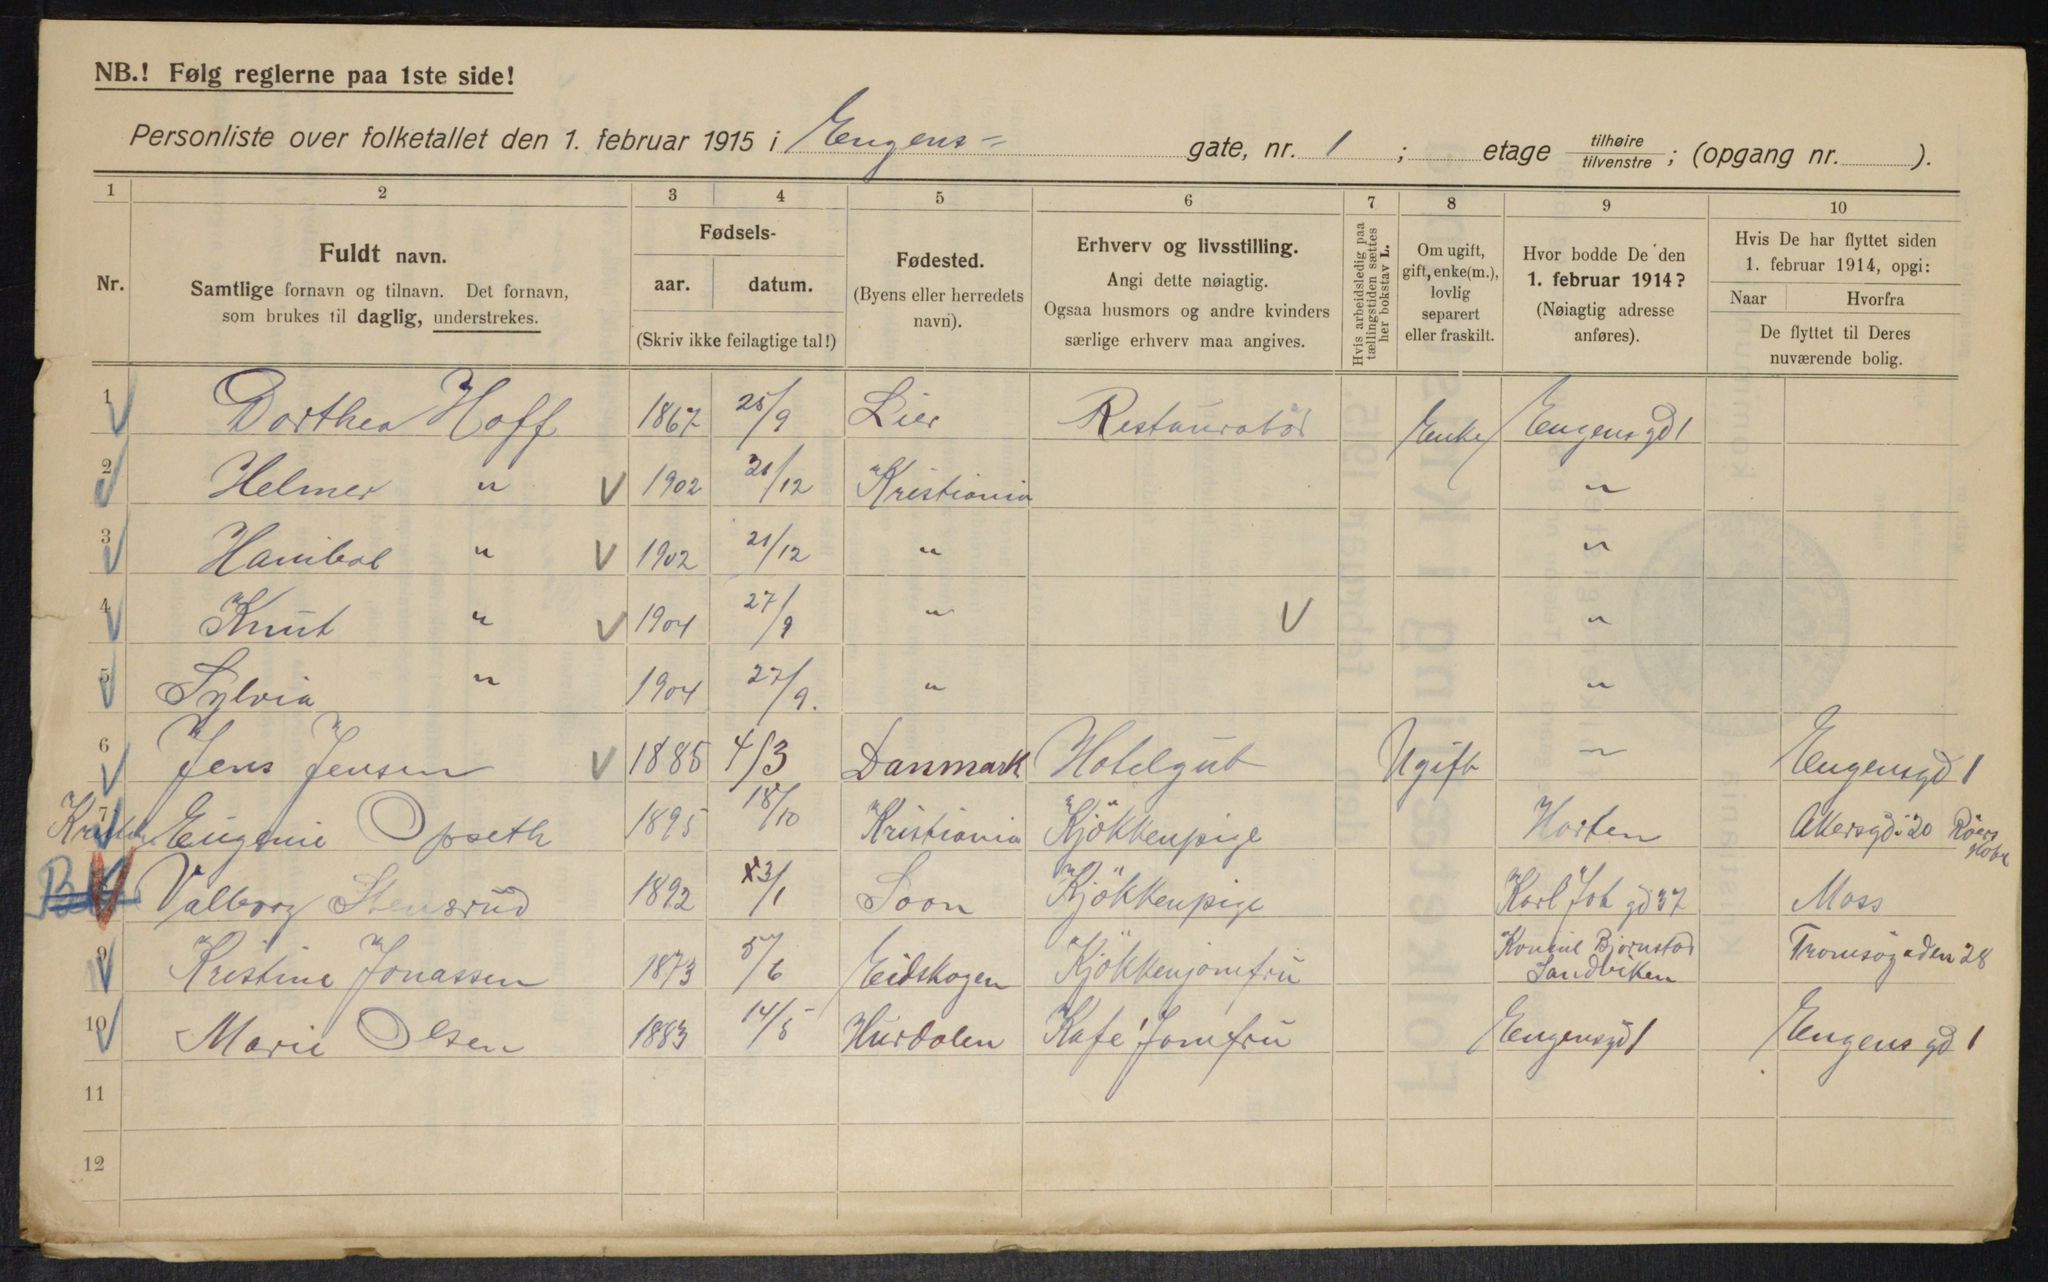 NB.! Følg reglerne paa 1ste side!
Personliste over folketallet den 1. februar 1915 i Eugens- gate, nr. 1 ; etage tilhøire tilvenstre ; (opgang nr. ).
1 2 3 4 5 6 7 8 9 10
Nr.
Fuldt navn.
Samtlige fornavn og tilnavn. Det fornavn,
som brukes til daglig, understrekes.
Fødsels-
aar. datum.
(Skriv ikke feilagtige tal!)
Fødested.
(Byens eller herredets
navn).
Erhverv og livsstilling.
Angi dette nøiagtig.
Ogsaa husmors og andre kvinders
særlige erhverv maa angives.
Hvis arbeidsledig paa
tællingstiden sættes
her bokstav L.
Om ugift,
gift, enke(m.),
lovlig
separert
eller fraskilt.
Hvor bodde De den
1. februar 1914?
(Nøiagtig adresse
anføres).
Hvis De har flyttet siden
1. februar 1914, opgi:
Naar Hvorfra
De flyttet til Deres
nuværende bolig.
1 Dorthea Hoff 1867 25/9 Lier Restauratör Enke Eugensgd 1
2 Helmer " V 1902 21/12 Kristiania "
3 Hanibal " V 1902 21/12 " "
4 Knut " V 1904 27/9 " V "
5 Sylvia " 1904 27/9. " "
6 Jens Jensen V 1885 4/3 Danmark Hotelgut Ugift " Eugensgd 1
7 Eugenie Opseth 1895 18/10 Kristiania Kjökkenpige Horten Akersgd. 20
Valborg Stensrud 1892 3/1 Soon Kjökkenpige Karl Joh gd 37 Moss
9 Kristine Jonassen 1873 5/6 Eidskogen Kjökkenjomfru Konsul Björnstad Sandviken Tromsögaden 28
10 Marie Olsen 1883 14/5 Hurdalen Kafé Jomfru Eugensgd 1 Eugens gd 1
11
12